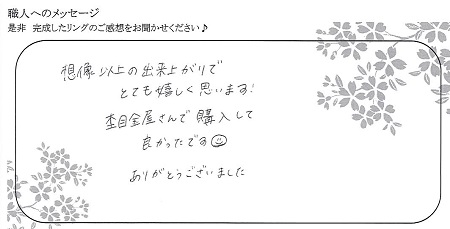 職人へのメッセージ
是非 完成したリングのご感想をお聞かせください♪
想像以上の出来上がりで
とても嬉しく思います!
杢目金屋さんで購入して
良かったです☺
ありがとうございました